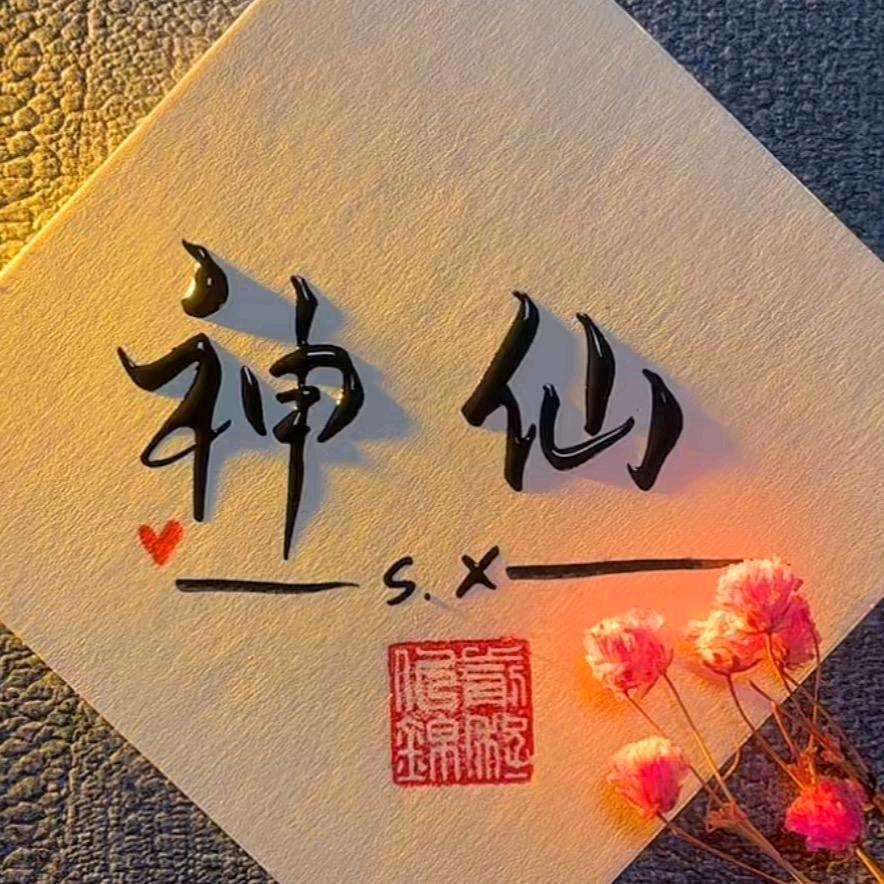 神仙
S. X